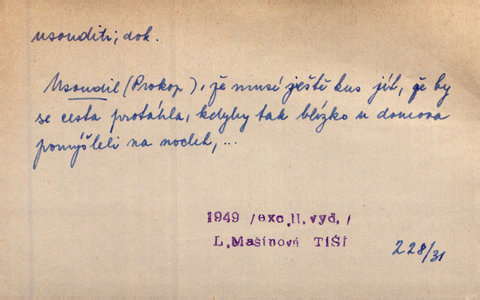 usouditi; dok.
Usoudil (Prokop), že musí ještě kus jít, že by
se cesta protáhla, kdyby tak blízko u domova
pomýšleli na nocleh, ...
1949 /exc. II. vyd. /
L. Mašínová TIŠÍ
228/31